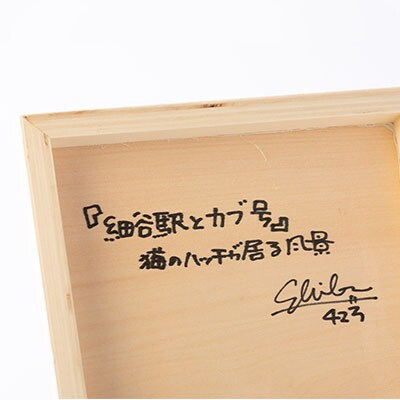 『細谷駅とカブ号』
猫のハッチが居る風景
Shiba
423